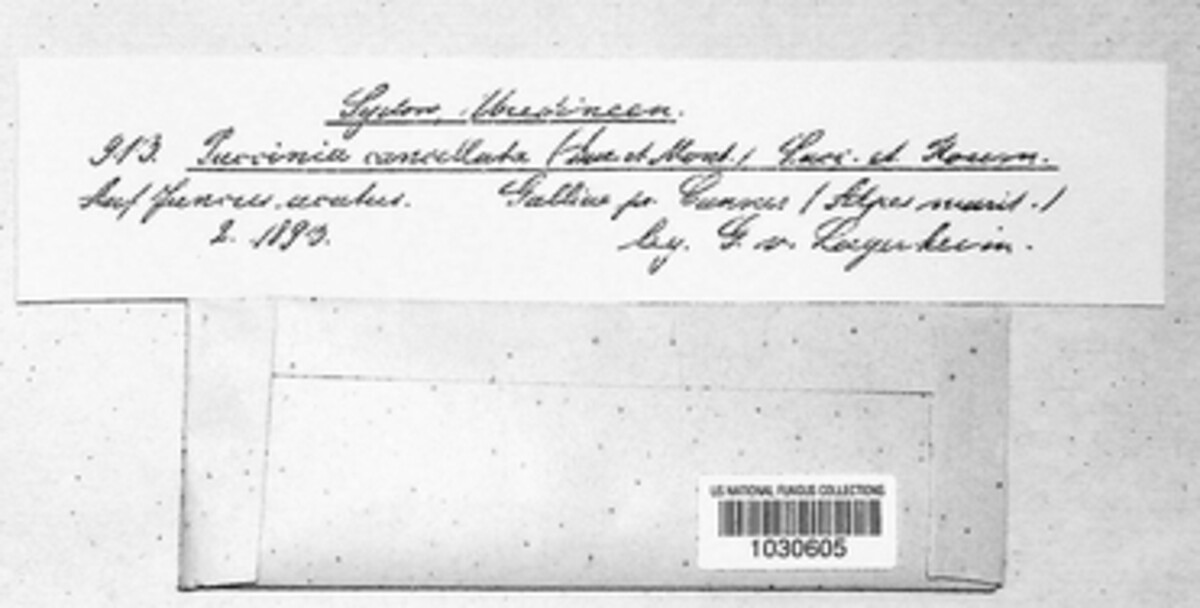 Sydow, Uredineen.
913. Puccinia cancellata (Dur. et Mont.) Sacc. et Roum.
Auf Juncus acutus. Gallia pr. Cannes (Alpes marit.)
2. 1893. leg. G. v. Lagerheim.
US NATIONAL FUNGUS COLLECTIONS
1030605